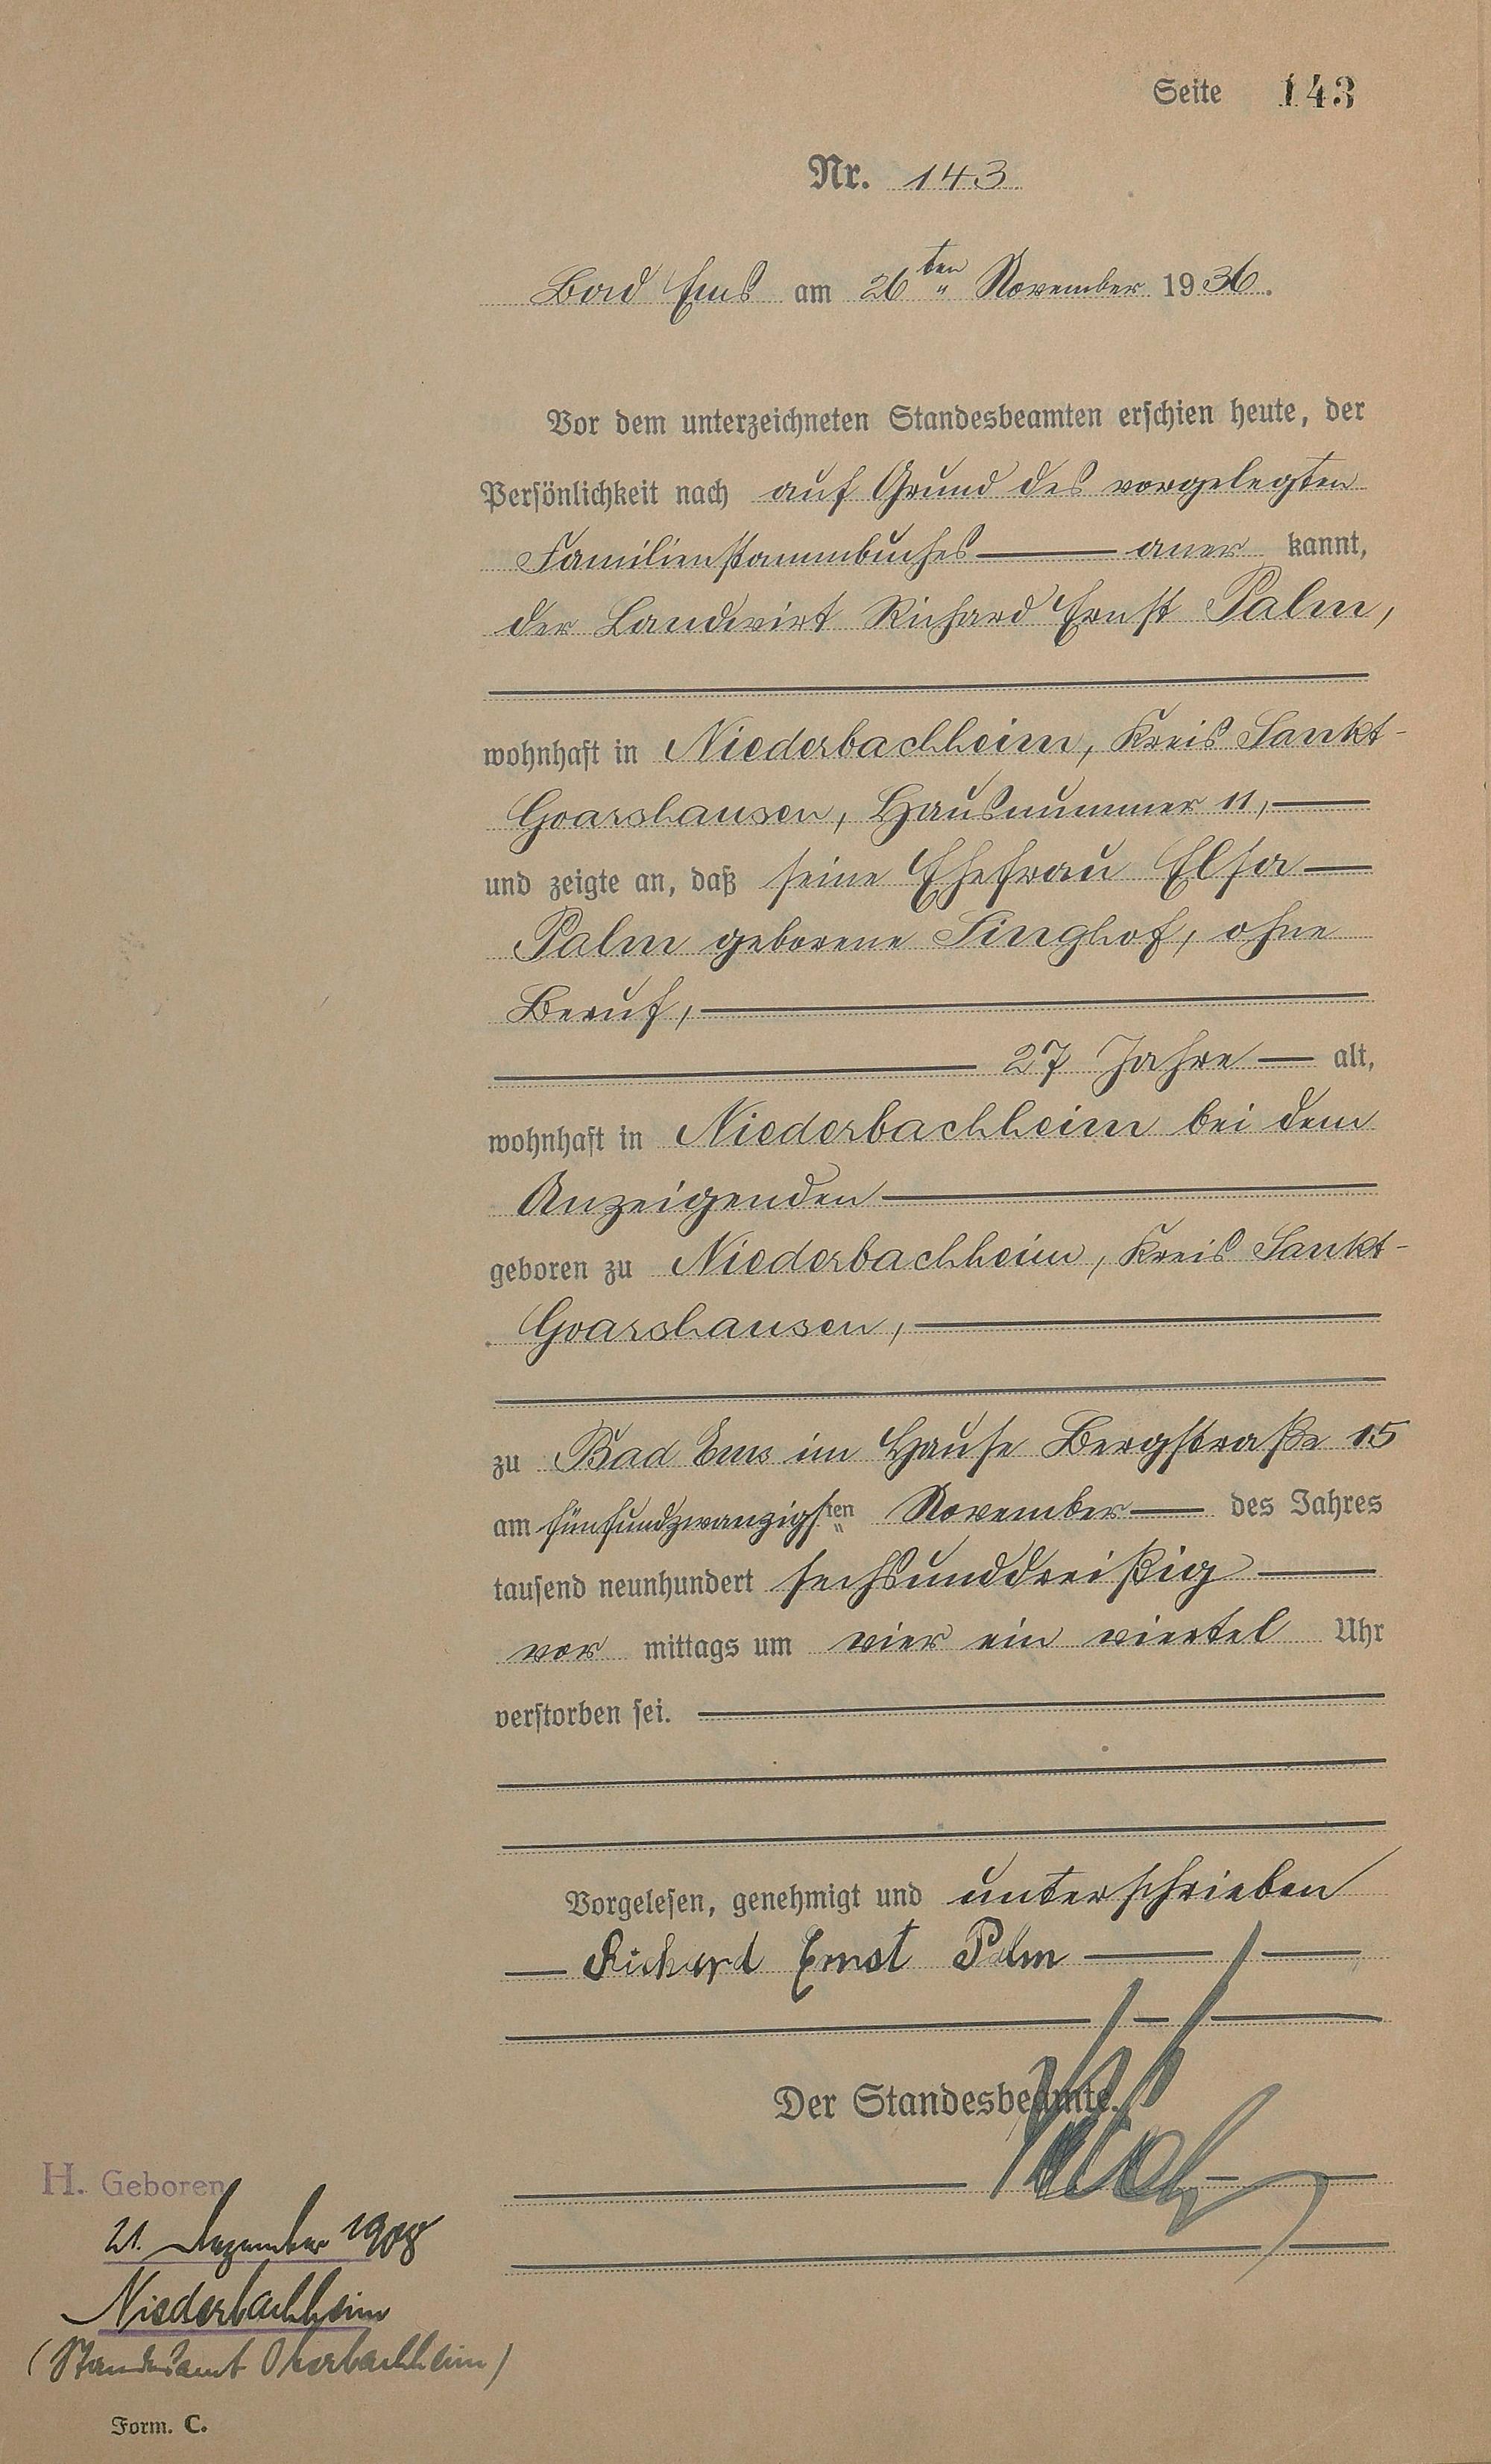 Seite 143
Nr. 143
Bad Ems am 26ten November 1936.
Vor dem unterzeichneten Standesbeamten erschien heute, der
Persönlichkeit nach auf Grund des vorgelegten
Familienstammbuches — aner kannt,
der Landwirt Richard Ernst Palm,
wohnhaft in Niederbachheim, Kreis Sankt-
Goarshausen, Hausnummer 11, —
und zeigte an, daß seine Ehefrau Elsa —
Palm geborene Singhof, ohne
Beruf, —
— 27 Jahre — alt,
wohnhaft in Niederbachheim bei dem
Anzeigenden —
geboren zu Niederbachheim, Kreis Sankt-
Goarshausen, —
zu Bad Ems im Hause Bergstraße 15
am fünfundzwanzigsten November — des Jahres
tausend neunhundert sechsunddreißig —
vor mittags um vier ein viertel Uhr
verstorben sei. —
Vorgelesen, genehmigt und unterschrieben
— Richard Ernst Palm —
Der Standesbeamte.
H. Geboren
21. Dezember 1908
Niederbachheim
(Standesamt Oberbachheim)
Form. C.